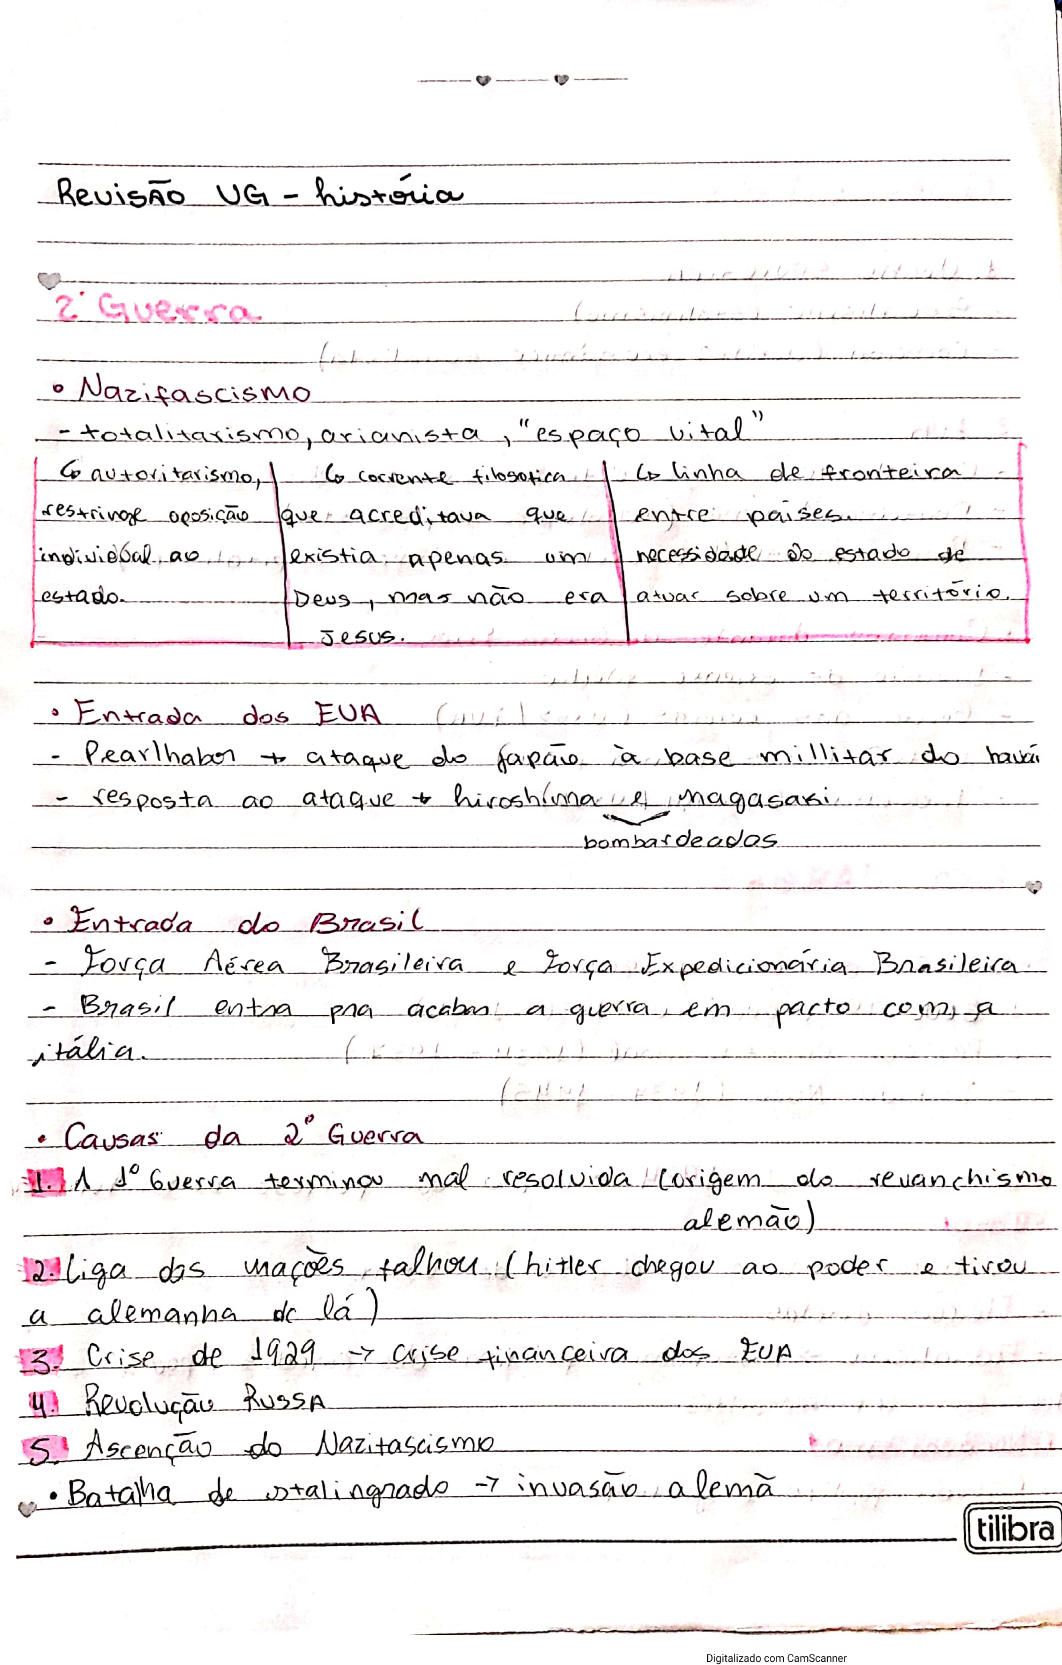 Revisão UG - história
2ª Guerra
• Nazifascismo
- totalitarismo, arianista, "espaço vital"
↳ autoritarismo,
restringe oposição
individual ao
estado.
↳ corrente filosofica
que acreditava que
existia apenas um
Deus, mas não era
Jesus.
↳ linha de fronteira
entre paises.
necessidade do estado de
atuar sobre um território.
• Entrada dos EUA
- Pearlhabor → ataque do Japão à base millitar do havaí
- resposta ao ataque → hiroshima e nagasaki
bombardeados
• Entrada do Brasil
- Força Aérea Brasileira e Força Expedicionária Brasileira
- Brasil entra pra acabar a guerra em pacto com a
itália.
• Causas da 2ª Guerra
1. A 1º Guerra terminou mal resolvida (origem do revanchismo
alemão)
2. Liga das nações falhou (hitler chegou ao poder e tirou
a alemanha de lá)
3. Crise de 1929 → crise financeira dos EUA
4. Revolução Russa
5. Ascenção do Nazifascismo
• Batalha de stalingrado → invasão alemã
tilibra
Digitalizado com CamScanner